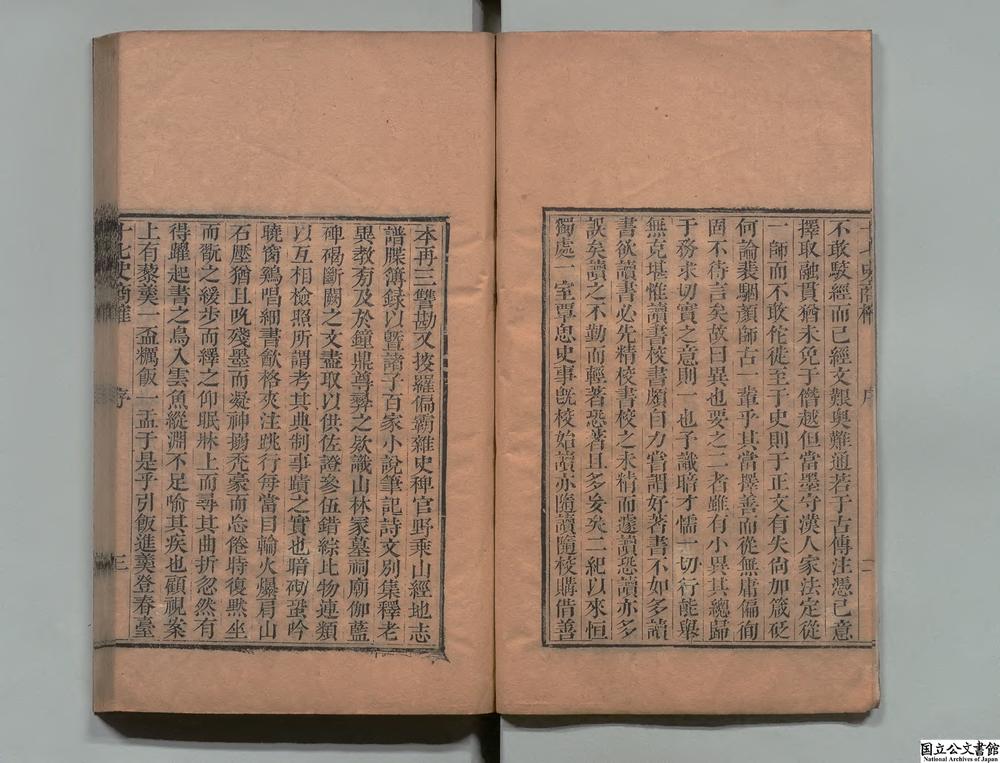 不敢駁經而已經文艱奧難通若于古傳注憑己意
擇取融貫猶未免于僭越但當墨守漢人家法定從
一師而不敢佗徙至于史則于正文有失尙加箴砭
何論裴駰顏師古一輩乎其當擇善而從無庸偏徇
固不待言矣故曰異也要之二者雖有小異其總歸
于務求切實之意則一也予識暗才懦一切行能舉
無克堪惟讀書校書頗自力嘗謂好著書不如多讀
書欲讀書必先精校書校之未精而遽讀恐讀亦多
誤矣讀之不勤而輕著恐著且多妄矣二紀以來恒
獨處一室覃思史事旣校始讀亦隨讀隨校購借善
本再三讐勘又搜羅偏霸雜史稗官野乘山經地志
譜牒簿錄以暨諸子百家小說筆記詩文別集釋老
異敎旁及於鐘鼎尊彝之欵識山林冢墓祠廟伽藍
碑碣斷闕之文盡取以供佐證參伍錯綜比物連類
以互相檢照所謂考其典制事蹟之實也暗砌蛩吟
曉窗雞唱細書飮格夾注跳行每當目輪火爆肩山
石壓猶且吮殘墨而凝神搦禿豪而忘倦時復默坐
而翫之緩步而繹之仰眠牀上而尋其曲折忽然有
得躍起書之鳥入雲魚縱淵不足喻其疾也顧視案
上有藜羹一盃糲飯一盂于是乎引飯進羹登春臺
十七史商榷
序
三
国立公文書館
National Archives of Japan